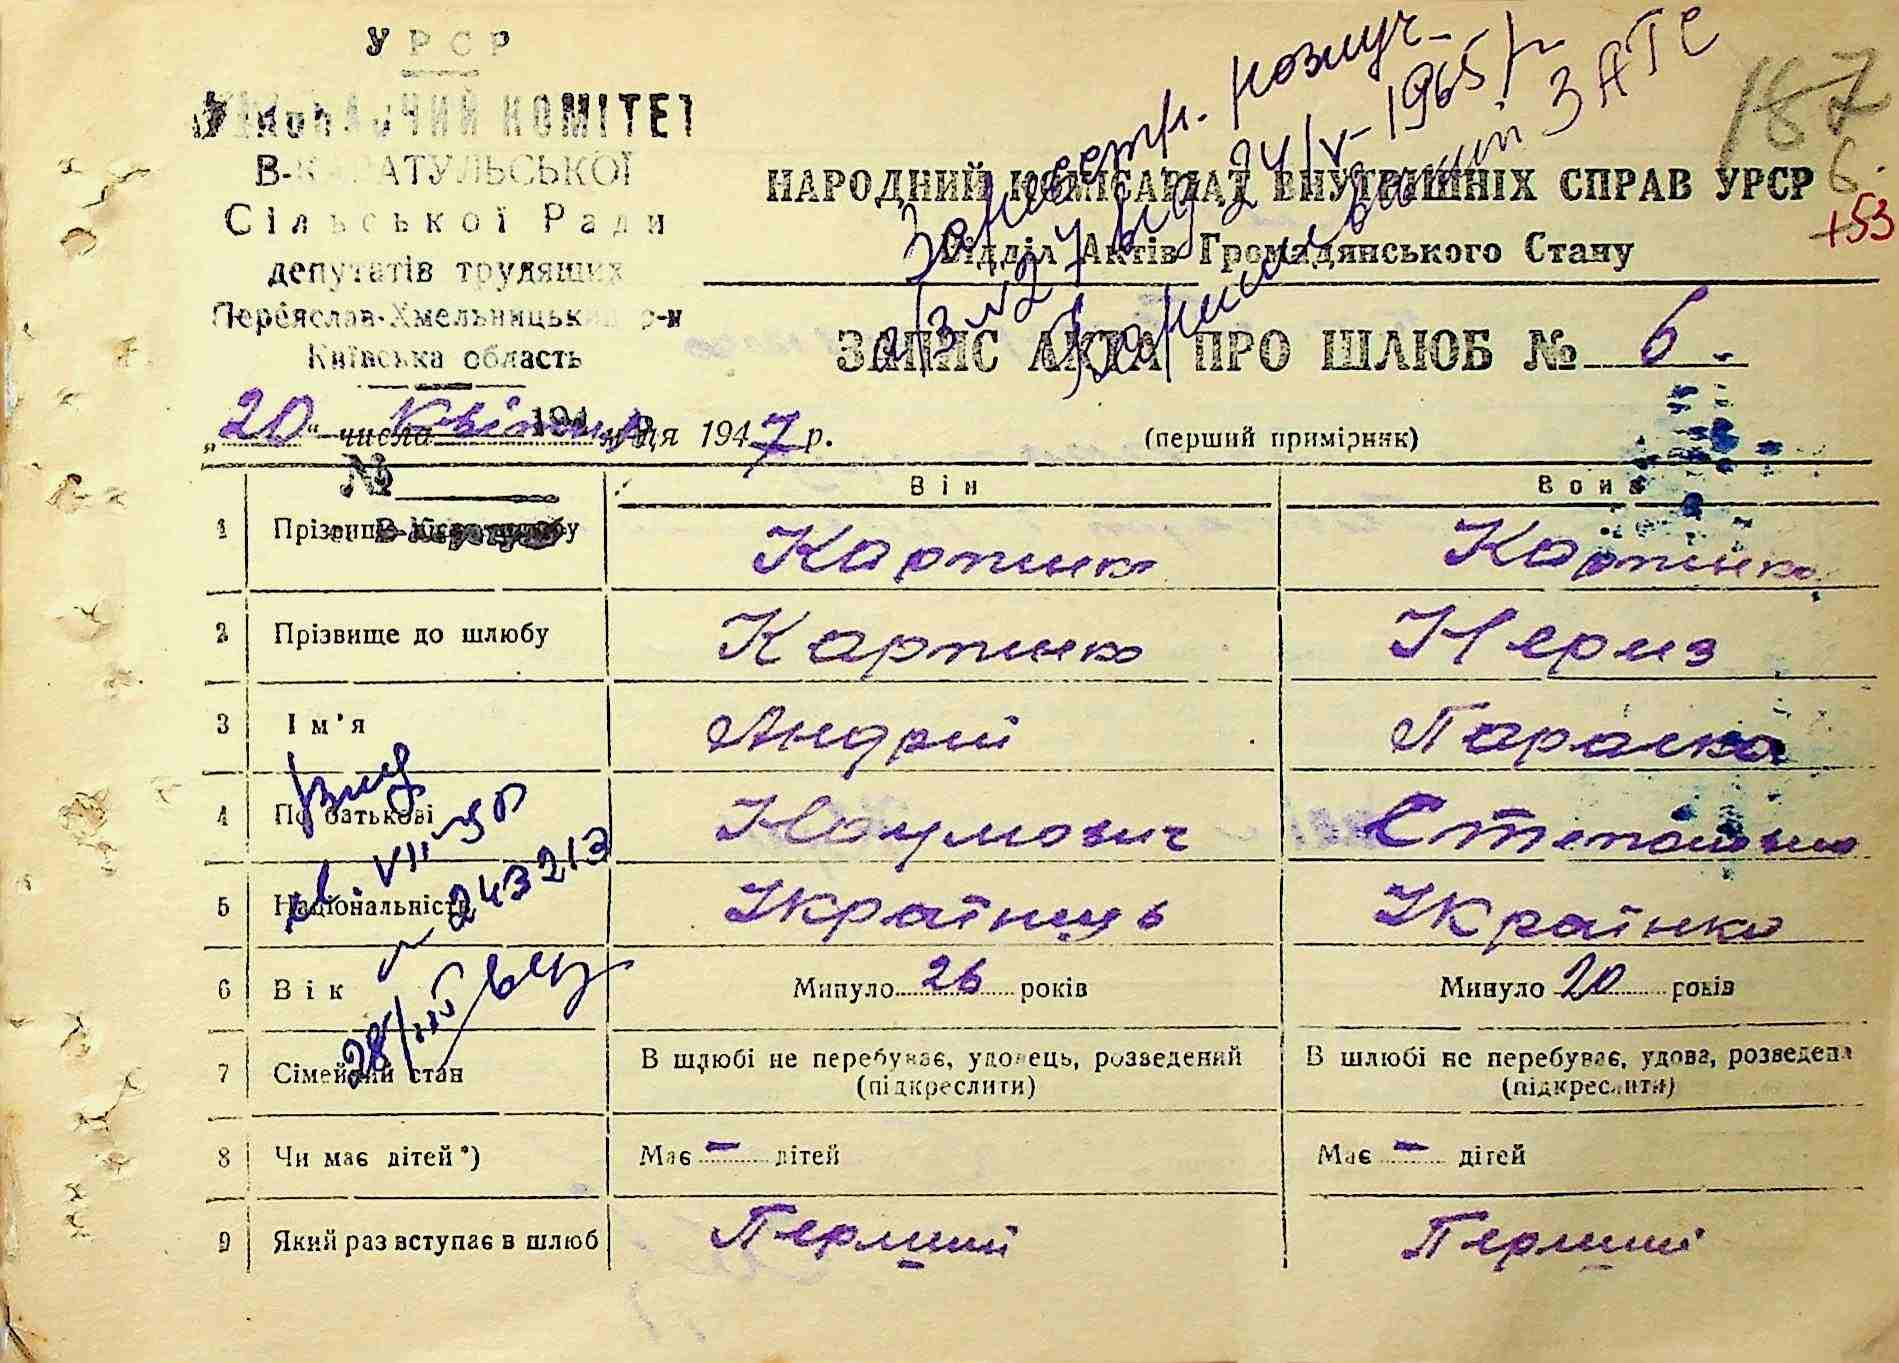 УРСР
ВИКОНАВЧИЙ КОМІТЕТ
В-КАРАТУЛЬСЬКОЇ
Сільської Ради
депутатів трудящих
Переяслав-Хмельницький р-н
Київська область
194 р.
№
187
6.
+53
НАРОДНИЙ КОМІСАРІАТ ВНУТРІШНІХ СПРАВ УРСР
Відділ Актів Громадянського Стану
24/V-1965 р.
ЗАГС
ЗАПИС АКТА ПРО ШЛЮБ № 6
„20“ числа квітня м-ця 1947 р.
(перший примірник)
Він Вона
1 Прізвище після шлюбу Карпенко Карпенко
2 Прізвище до шлюбу Карпенко Нериз
3 Ім'я Андрій Параска
4 По батькові Наумович Степановна
5 Національність Українець Українка
VII
№ 243213
6 Вік Минуло 26 років Минуло 20 років
7 Сімейний стан В шлюбі не перебуває, удовець, розведений (підкреслити) В шлюбі не перебуває, удова, розведена (підкреслити)
8 Чи має дітей*) Має – дітей Має – дітей
9 Який раз вступає в шлюб Перший Перший